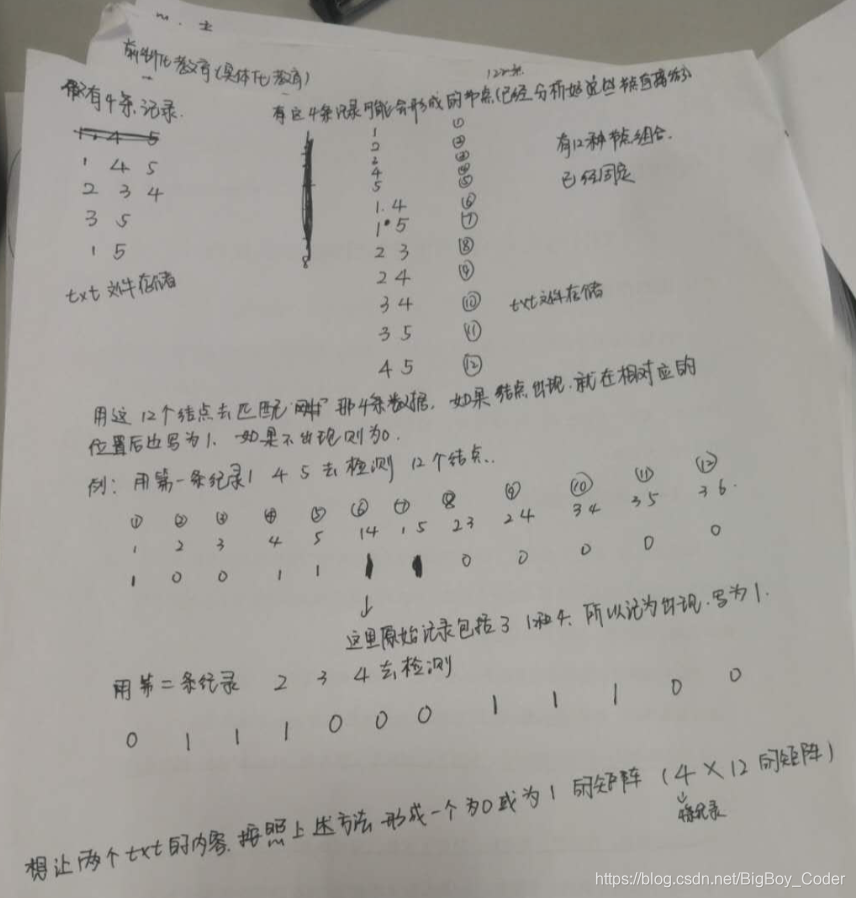 教育(具体化教育)
有4条记录.
1 4 5
1 4 5
2 3 4
3 5
1 5
txt文件存储
有这4条记录可能会形成的节点(已经分析好
1 ①
2 ②
3 ③
4 ④
5 ⑤
1 4 ⑥
1 5 ⑦
2 3 ⑧
2 4 ⑨
3 4 ⑩
3 5 ⑪
4 5 ⑫
有12种节点组合.
已经固定
txt文件存储
用这12个结点去匹配 那4条数据, 如果结点出现,就在相对应的
位置后边写为1. 如果不出现则为0.
例: 用第一条纪录1 4 5 去检测 12个结点..
① ② ③ ④ ⑤ ⑥ ⑦ ⑧ ⑨ ⑩ ⑪ ⑫
1 2 3 4 5 14 15 23 24 34 35 36.
1 0 0 1 1 1 1 0 0 0 0 0
↓
这里原始记录包括了 1和4. 所以记为出现.写为1.
用第二条纪录 2 3 4 去检测
0 1 1 1 0 0 0 1 1 1 0 0
想让两个txt的内容.按照上述方法 形成一个为0或为1 的矩阵 (4×12的矩阵)
↓
条纪录
https://blog.csdn.net/BigBoy_Coder